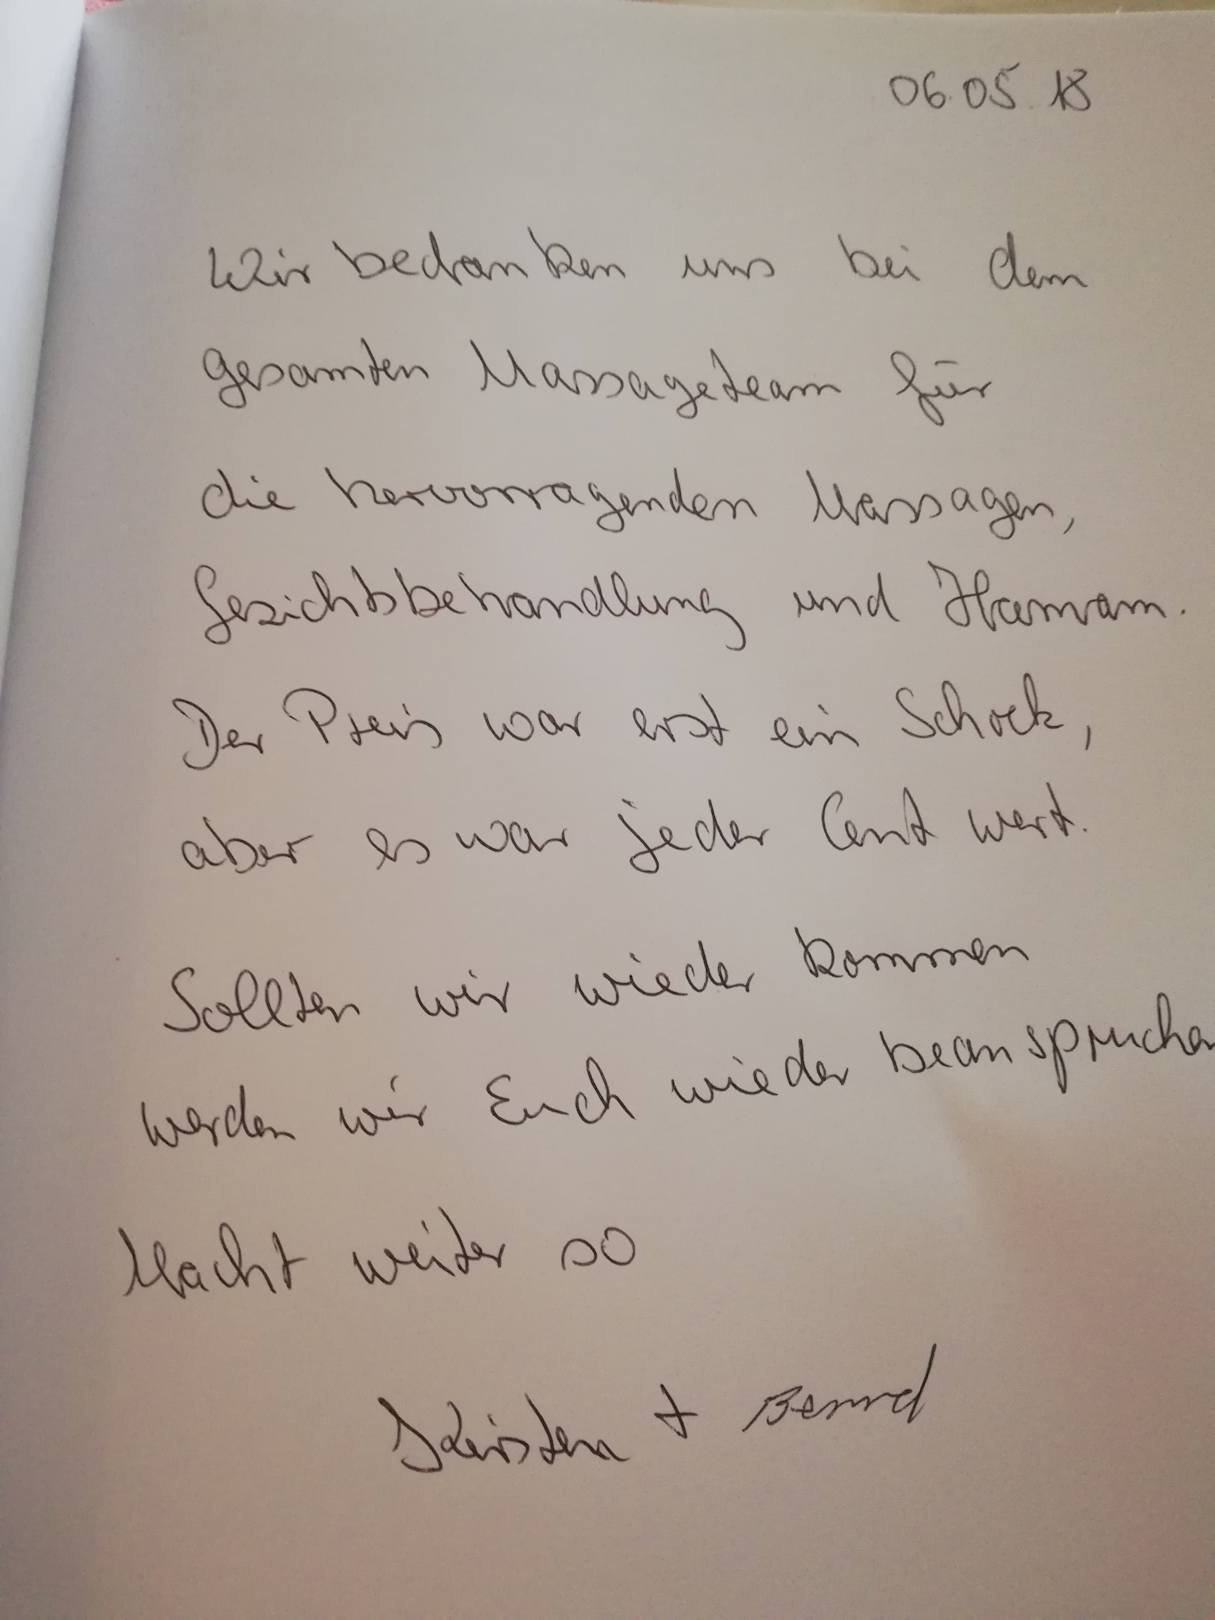 06.05.18
Wir bedanken uns bei dem
gesamten Massageteam für
die hervorragenden Massagen,
Gesichtsbehandlung und Hamam.
Der Preis war erst ein Schock,
aber es war jeder Cent wert.
Sollten wir wieder kommen
werden wir Euch wieder beanspruchen
Macht weiter so
Kirsten + Bernd